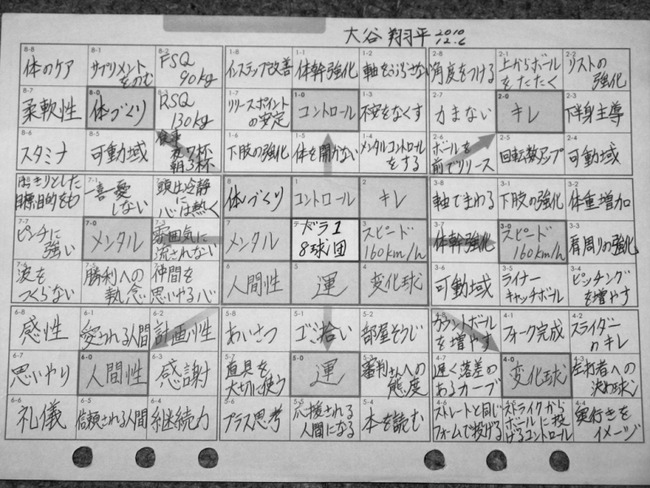 大谷 翔平 2010 12.6
8-8 8-1 8-2 1-8 1-1 1-2 2-8 2-1 2-2
体のケア サプリメントをのむ FSQ 90kg インステップ改善 体幹強化 軸をぶらさない 角度をつける 上からボールをたたく リストの強化
8-7 8-0 8-3 1-7 1-0 1-3 2-7 2-0 2-3
柔軟性 体づくり RSQ 130kg リリースポイントの安定 コントロール 不安をなくす 力まない キレ 下半身主導
8-6 8-5 1-6 1-5 1-4 2-6 2-5 2-4
スタミナ 可動域 食事 夜7杯 朝3杯 下肢の強化 体を開かない メンタルコントロールをする ボールを前でリリース 回転数アップ 可動域
7-1 8 1 2 3-8 3-1 3-2
はっきりとした目標目的をもつ 一喜一憂しない 頭は冷静に心は熱く 体づくり コントロール キレ 軸でまわる 下肢の強化 体重増加
7-7 7-0 7-3 7 3 3-7 3-0 3-3
ピンチに強い メンタル 雰囲気に流されない メンタル ドラ1 8球団 スピード 160km/h 体幹強化 スピード 160km/h 肩周りの強化
7-6 7-5 7-4 6 5 4 3-6 3-5 3-4
波をつくらない 勝利への執念 仲間を思いやる心 人間性 運 変化球 可動域 ライナーキャッチボール ピッチングを増やす
6-8 6-1 6-2 5-8 5-1 5-2 4-1 4-2
感性 愛される人間 計画性 あいさつ ゴミ拾い 部屋そうじ カウントボールを増やす フォーク完成 スライダーのキレ
6-7 6-0 6-3 5-7 5-0 4-7 4-0
思いやり 人間性 感謝 道具を大切に使う 運 審判さんへの態度 遅く落差のあるカーブ 変化球 左打者への決め球
6-6 6-5 6-4 5-6 5-5 5-4 4-6 4-5 4-4
礼儀 信頼される人間 継続力 プラス思考 応援される人間になる 本を読む ストレートと同じフォームで投げる ストライクからボールに投げるコントロール 奥行きをイメージ